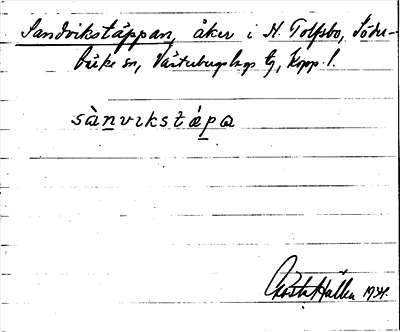 Sandvikstäppan, åker i N. Tolfsbo, Söder-
bärke sn, Västerbergslags tg, Kopp. l.
sànvikstápa
Gösta Hallén 1934.